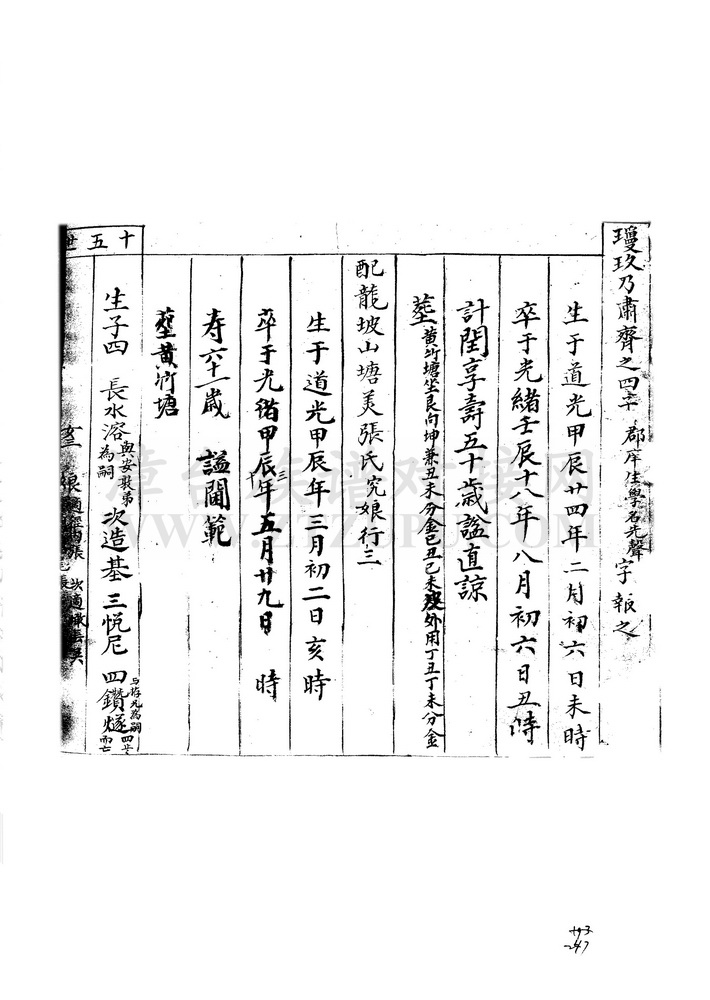 瓊玖乃肅齊之四子 郡庠生學名先聲 字報之
生于道光甲辰廿四年二月初六日未時
卒于光緒壬辰十八年八月初六日丑時
計閏享壽五十歲諡直諒
塟黃竹塘坐艮向坤兼丑未分金己丑己未 外用丁丑丁未分金
配龍坡山塘美張氏究娘行三
生于道光甲辰年三月初二日亥時
卒于光緒甲辰年五月廿九日 時
三十
寿六十一歲 諡閫範
塟黃竹塘
十五世
生子四 長水溶與安敦弟為嗣 次造基 三悦尼 四鑽燧
女三
漳台族谱对接网
WWW.ZTZUPU.COM
247